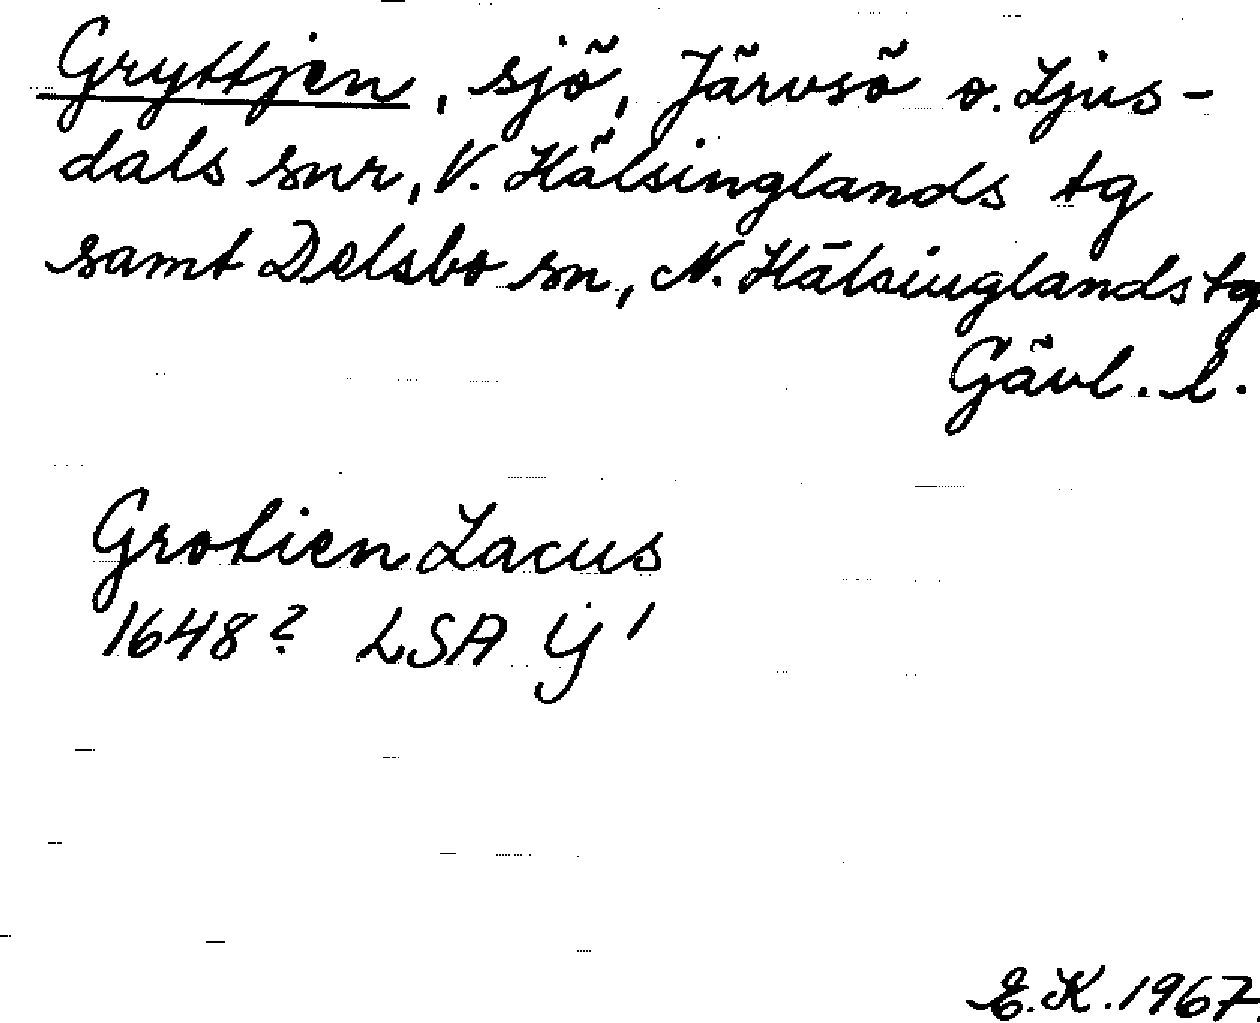 Gryttjen, sjö, Järvsö o. Ljus-
dals snr, V. Hälsinglands tg
samt Delsbo sn, N. Hälsinglands tg
Gävl. l.
Grotien Lacus
1648? LSA Ÿ 1
E.K. 1967.